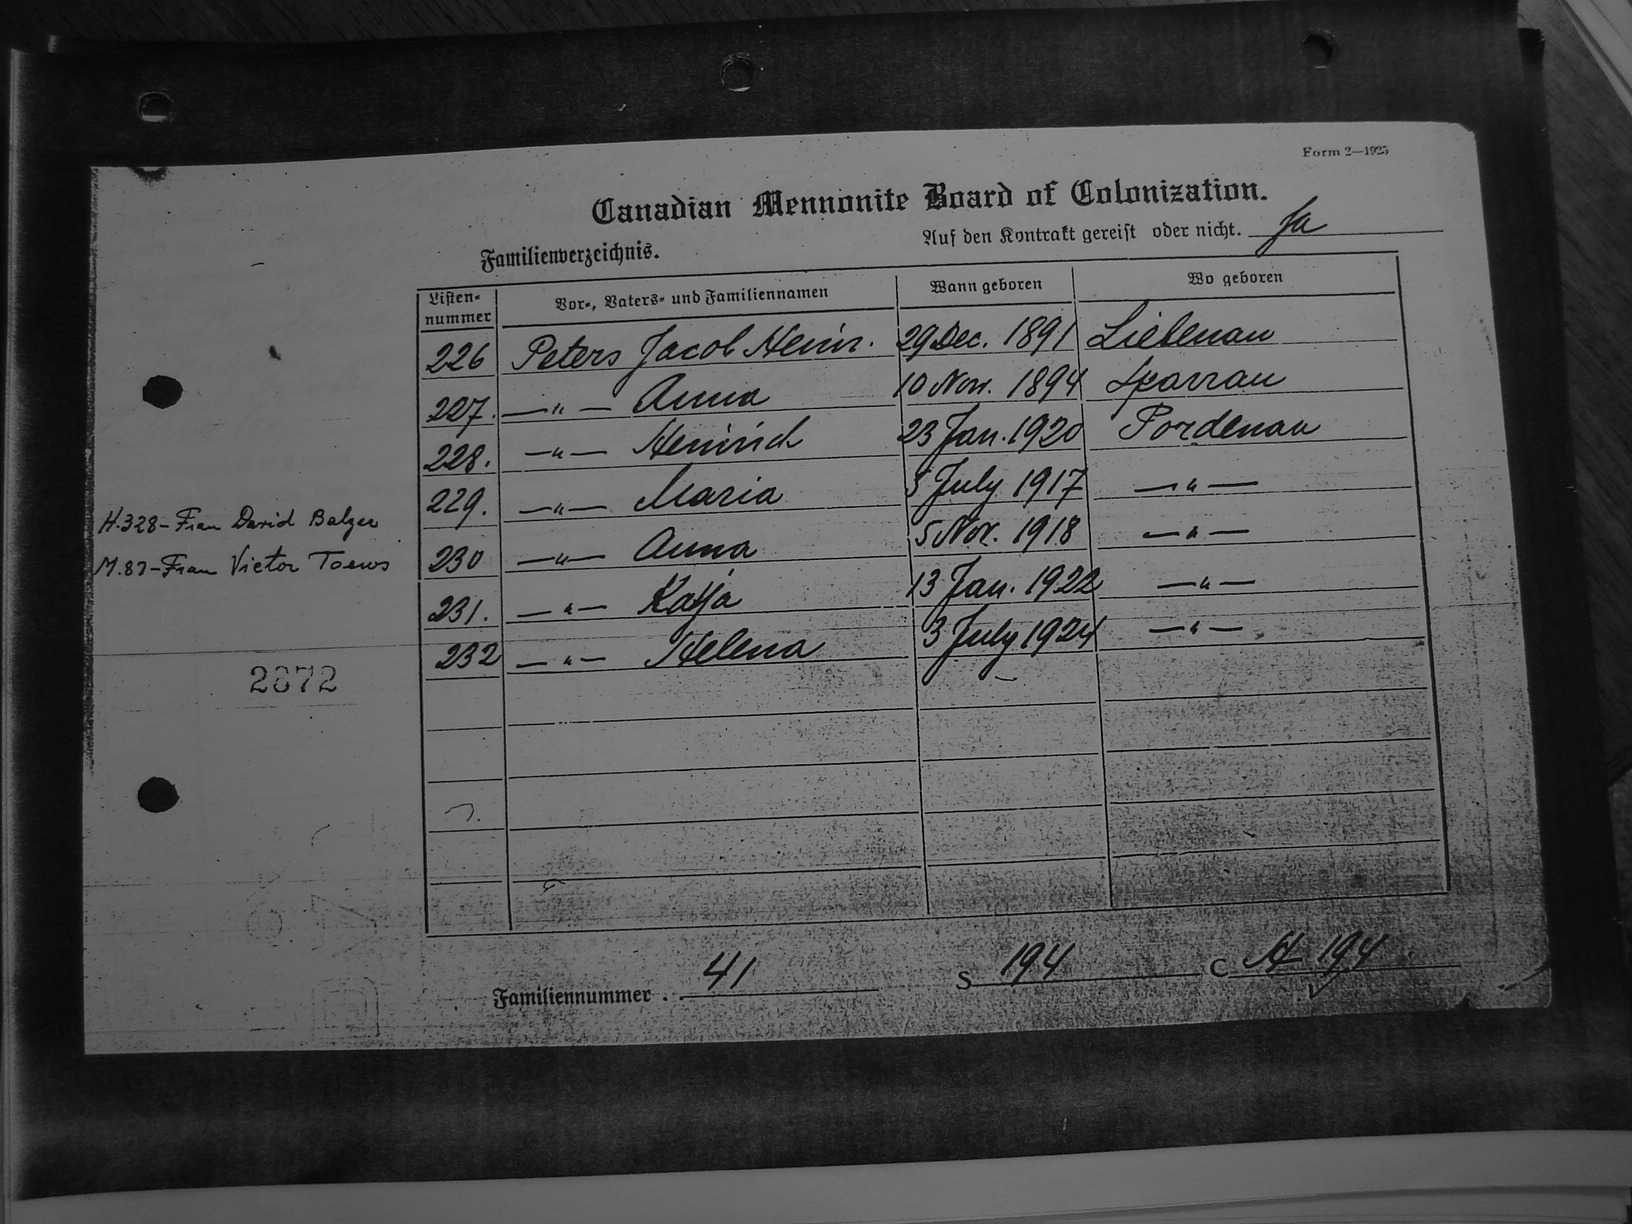 Form 2—1925
Canadian Mennonite Board of Colonization.
Familienverzeichnis.
Auf den Kontrakt gereist oder nicht. Ja
Listen-nummer Vor-, Vaters- und Familiennamen Wann geboren Wo geboren
226 Peters Jacob Heinr. 29 Dec. 1891 Liebenau
227. —„— Anna 10 Nov. 1894 Sparrau
228. —„— Heinrich 23 Jan. 1920 Pordenau
229. —„— Maria July 1917 —„—
230 —„— Anna 5 Nov. 1918 —„—
231. —„— Katja 13 Jan. 1922 —„—
232 —„— Helena 3 July 1924 —„—
H.328- Frau David Balzer
M.87- Frau Victor Toews
2672
Familiennummer. 41 S 194 C A 194